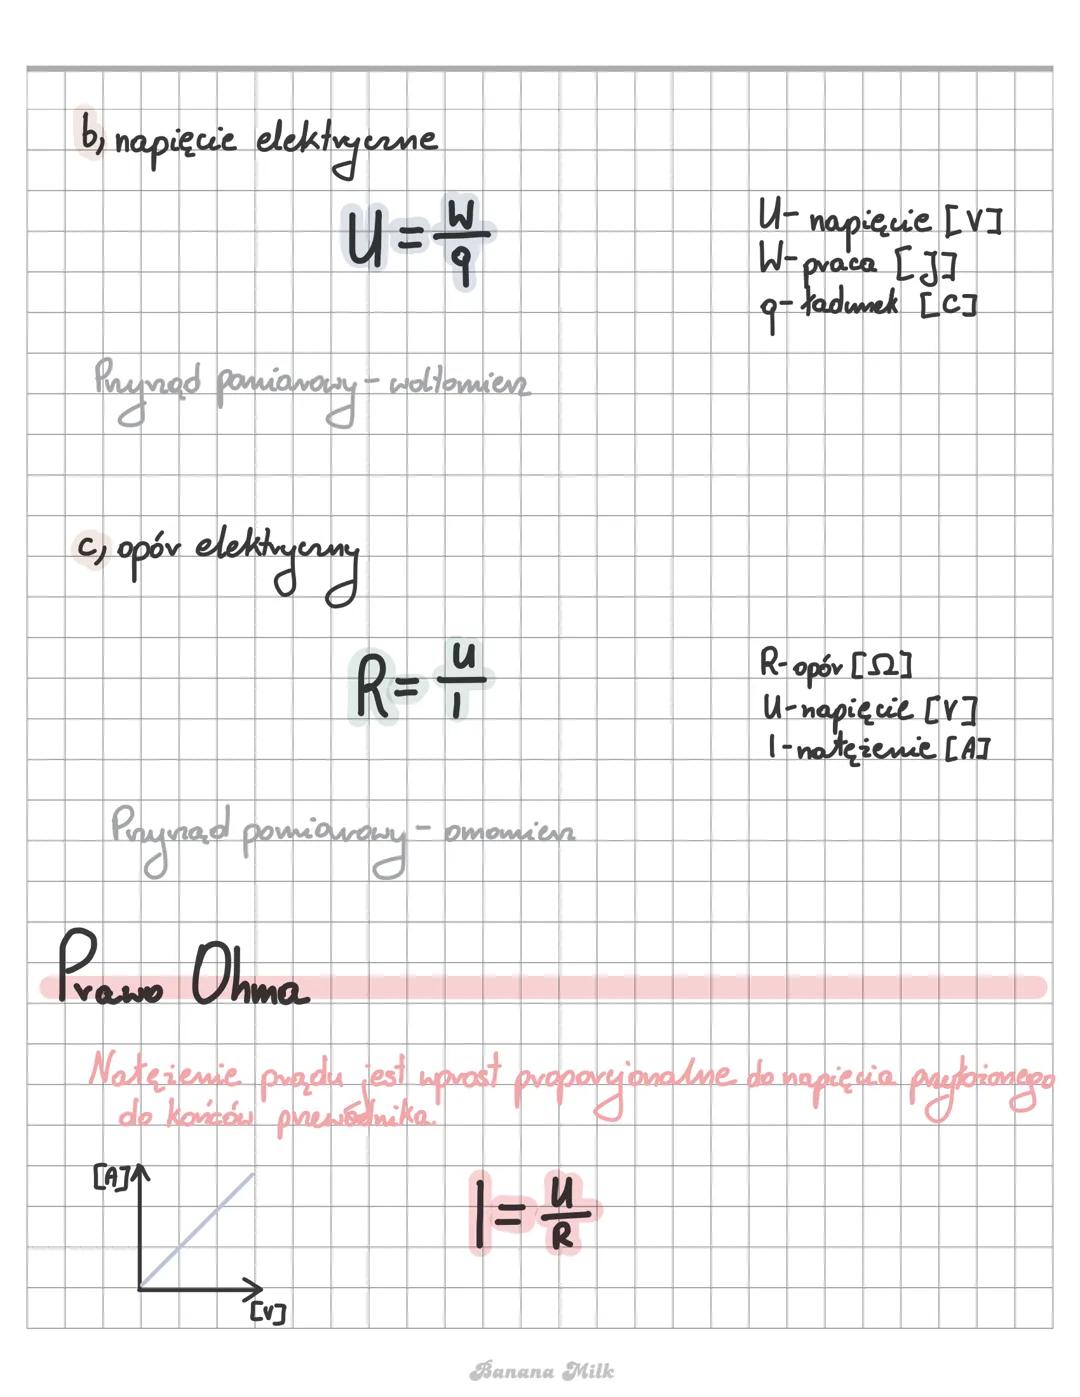 b, napięcie elektryczne
U = W/q
U- napięcie [V]
W- praca [J]
q- ładunek [C]
Przyrząd pomiarowy - woltomierz
c, opór elektryczny
R = U/I
R- opór [Ω]
U- napięcie [V]
I- natężenie [A]
Przyrząd pomiarowy - omomierz
Prawo Ohma
Natężenie prądu jest wprost proporcjonalne do napięcia przyłożonego
do końców przewodnika.
[A]
I = U/R
[V]
Banana Milk